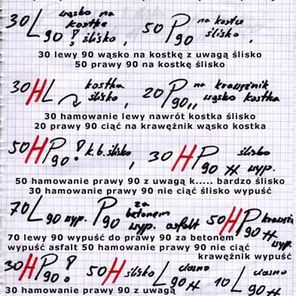 30 L 90 ! wąsko na kostkę ślisko, 50 P 90 na kostce ślisko,
30 lewy 90 wąsko na kostkę z uwagą ślisko
50 prawy 90 na kostkę ślisko
30 HL kostka ślisko, 20 P 90,, na krawężnik wąsko kostka
30 hamowanie lewy nawrót kostka ślisko
20 prawy 90 ciąć na krawężnik wąsko kostka
50 HP 90 ! k.b. ślisko, 30 HP 90 ślisko wyp.
50 hamowanie prawy 90 z uwagą k..... bardzo ślisko
30 hamowanie prawy 90 nie ciąć ślisko wypuść
70 L 90 wyp. P 90 za betonem wyp. asfalt 50 HP 90 krawężnik wyp.
70 lewy 90 wypuść do prawy 90 za betonem
wypuść asfalt 50 hamowanie prawy 90 nie ciąć
krawężnik wypuść
30 HP 90 ! 50 H ślisko L 90 ciasno 10 L 90 ciasno
30 hamowanie prawy 90 z uwagą